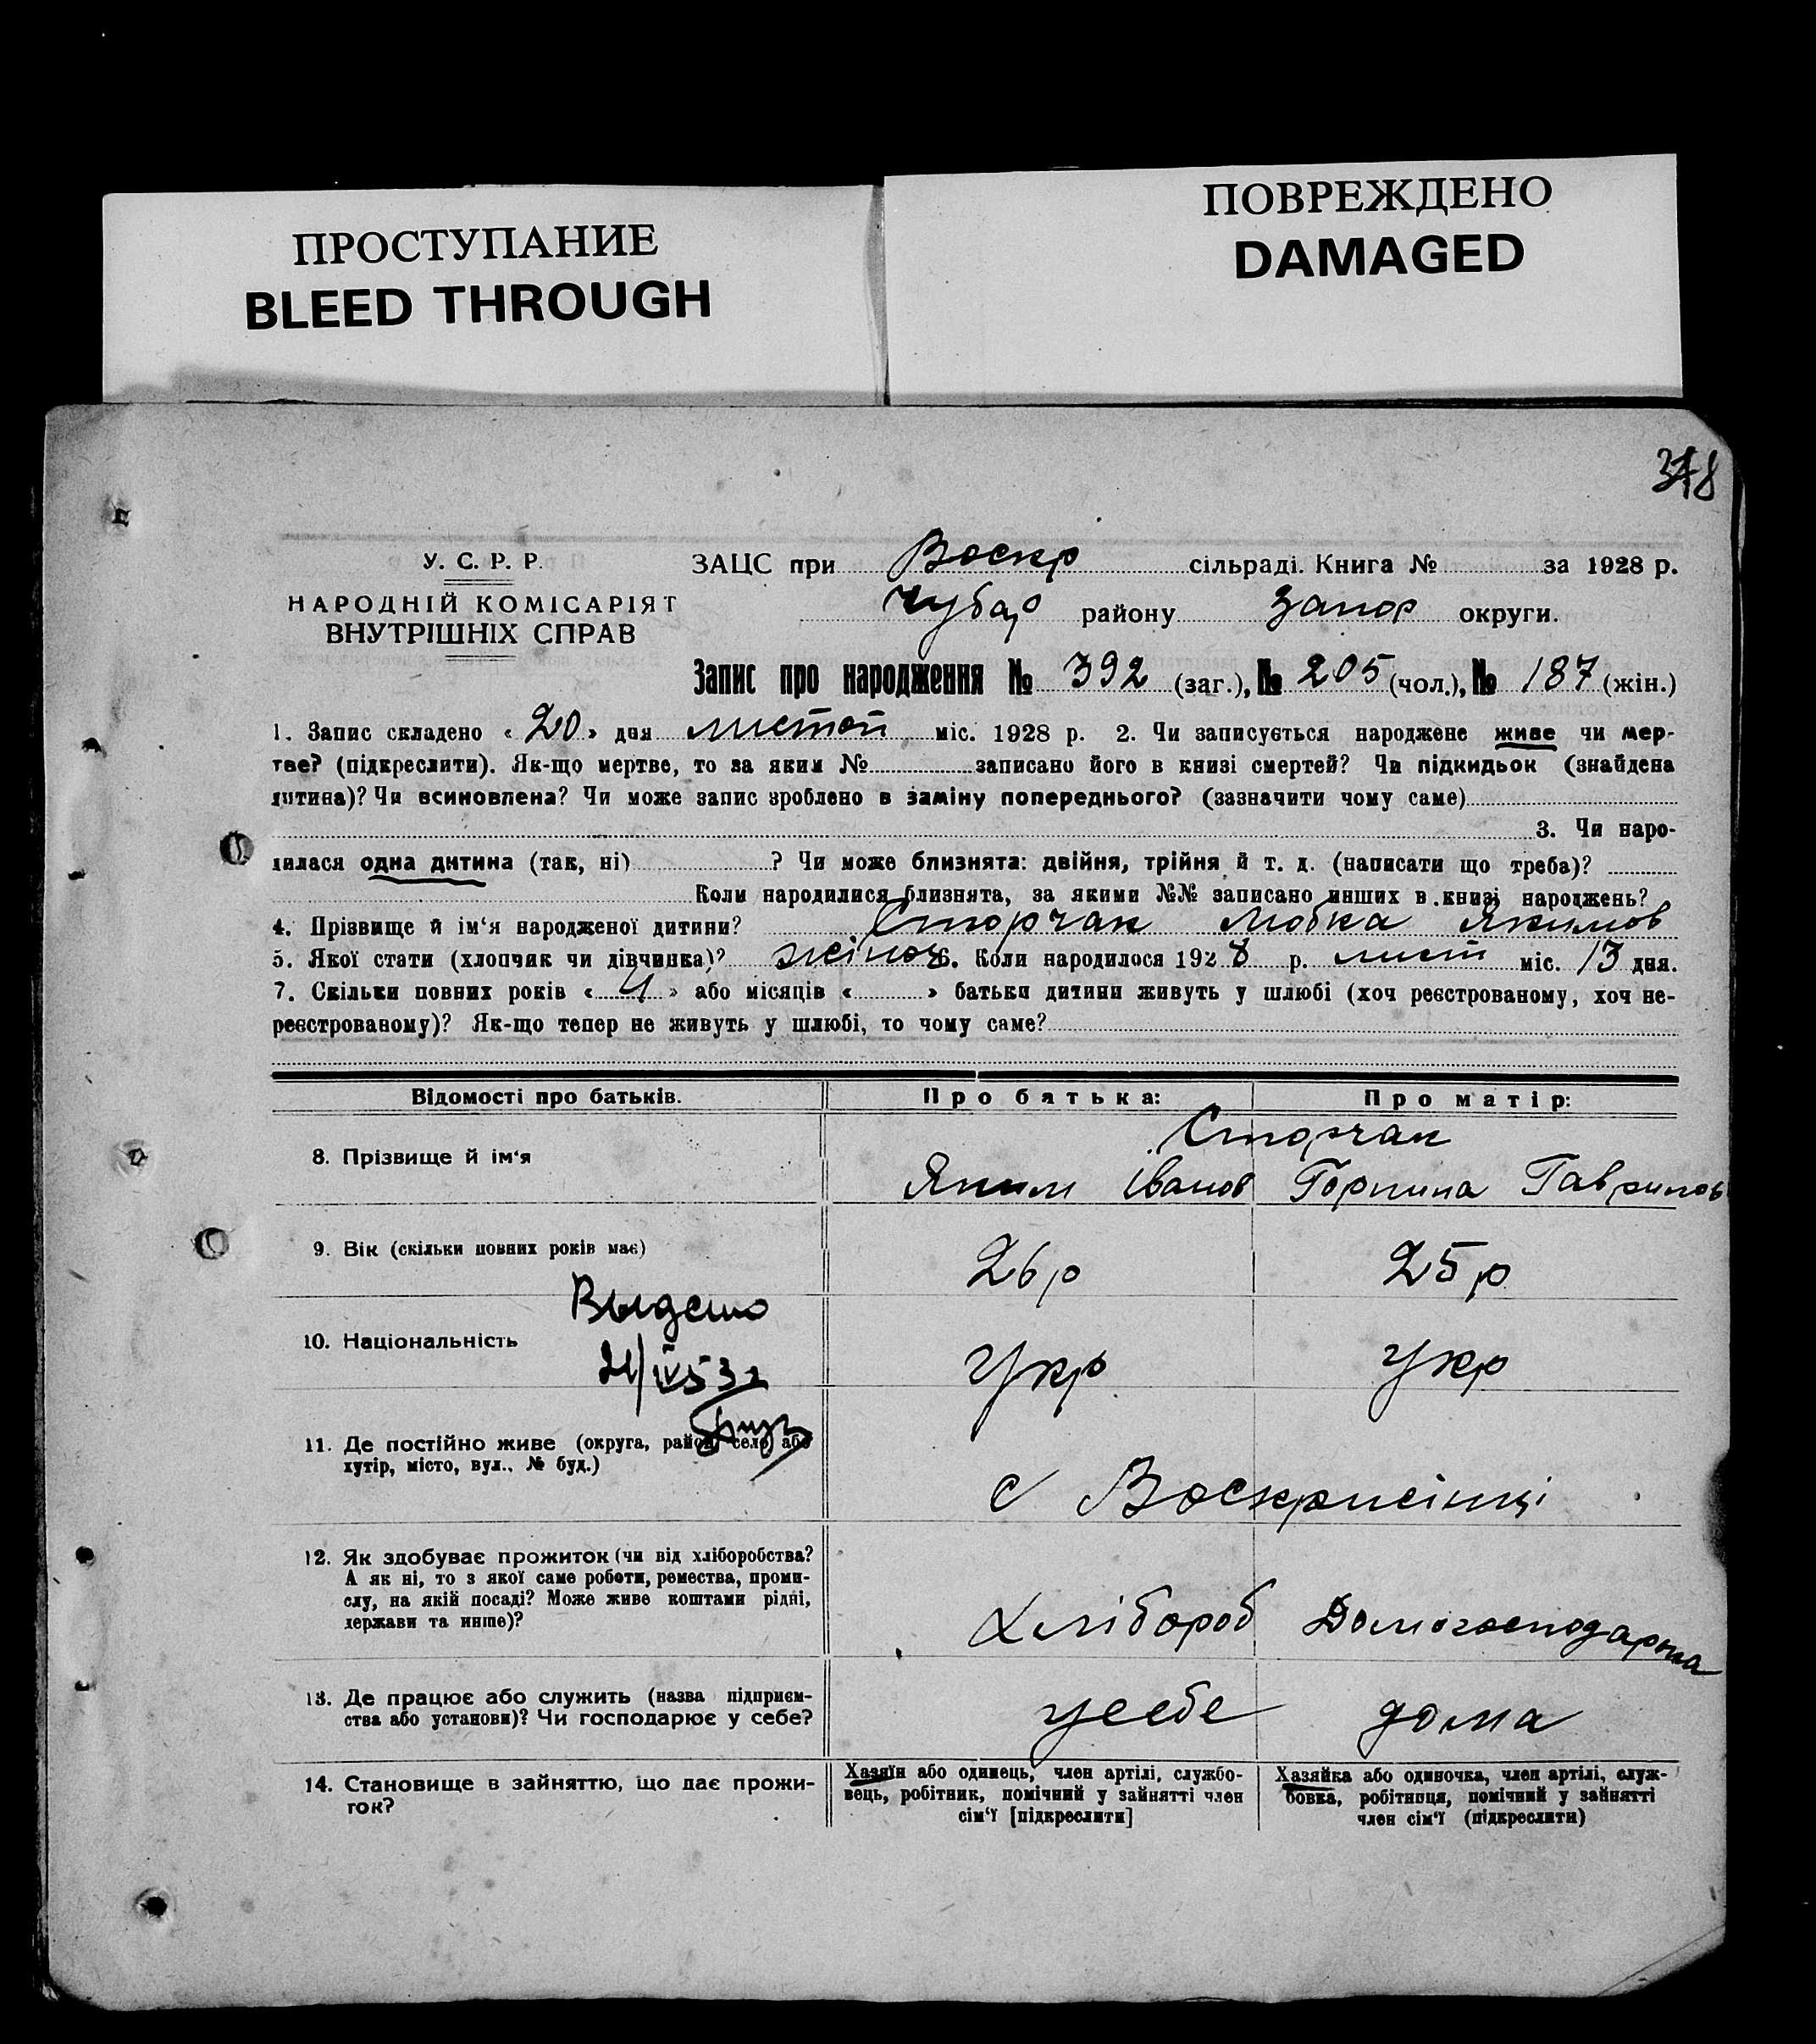 ПРОСТУПАНИЕ
BLEED THROUGH
ПОВРЕЖДЕНО
DAMAGED
378
У. С. Р. Р.
НАРОДНІЙ КОМІСАРІЯТ
ВНУТРІШНІХ СПРАВ
ЗАЦС при Воскр сільраді. Книга № за 1928 р.
Чубар району Запор округи.
Запис про народження № 392 (заг.), № 205 (чол.), № 187 (жін.)
1. Запис складено « 20 » дня листоп міс. 1928 р. 2. Чи записується народжене живе чи мер-
тве? (підкреслити). Як-що мертве, то за яким № записано його в книзі смертей? Чи підкидьок (знайдена
дитина)? Чи всиновлена? Чи може запис зроблено в заміну попереднього? (зазначити чому саме)
3. Чи наро-
дилася одна дитина (так, ні) ? Чи може близнята: двійня, трійня й т. д. (написати що треба)?
Коли народилися близнята, за якими №№ записано инших в книзі народжень?
4. Прізвище й ім‘я народженої дитини? Сторчак Любка Якимов
5. Якої статі (хлопчик чи дівчинка)? жіноч 6. Коли народилося 1928 р. лист міс. 13 дня.
7. Скільки повних років « 4 » або місяців « » батьки дитини живуть у шлюбі (хоч реєстрованому, хоч не-
реєстрованому)? Як-що тепер не живуть у шлюбі, то чому саме?
Відомості про батьків. Про батька: Про матір:
Сторчак
8. Прізвище й ім‘я Яким Іванов Горпина Гаврилов
9. Вік (скільки повних років має) 26 р 25 р
Выдано
10. Національність Укр Укр
21/IV 53 г
11. Де постійно живе (округа, район, село або
хутір, місто, вул., № буд.)
с Воскрисінці
12. Як здобуває прожиток (чи від хліборобства?
А як ні, то з якої саме роботи, ремества, проми-
слу, на якій посаді? Може живе коштами рідні,
держави та инше)?
Хлібороб Домогосподарка
13. Де працює або служить (назва підприєм-
ства або установи)? Чи господарює у себе?
усебе дома
14. Становище в зайняттю, що дає прожи-
ток?
Хазяїн або одинець, член артілі, службо-
вець, робітник, помічний у зайнятті член
сім‘ї [підкреслити]
Хазяйка або одиночка, член артілі, служ-
бовка, робітниця, помічний у зайнятті
член сім‘ї (підкреслити)